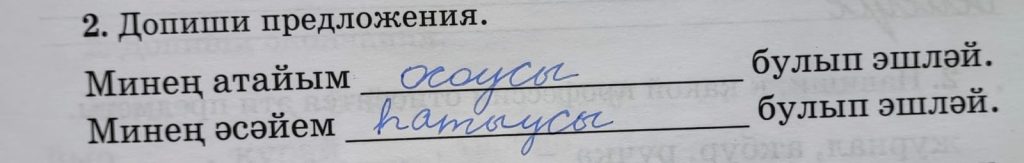 2. Допиши предложения.
Минең атайым осоусы булып эшләй.
Минең әсәйем һатыусы булып эшләй.